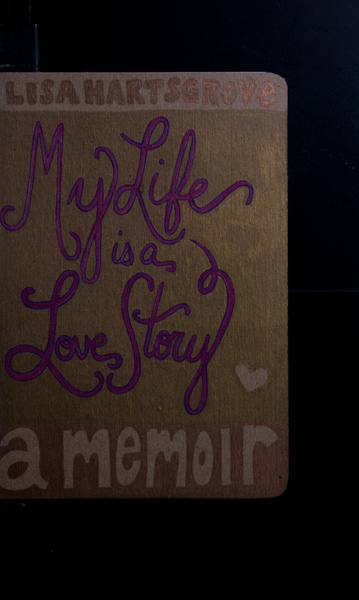 LISA HARTSGROVE
My Life
is a
Love Story
a memoir